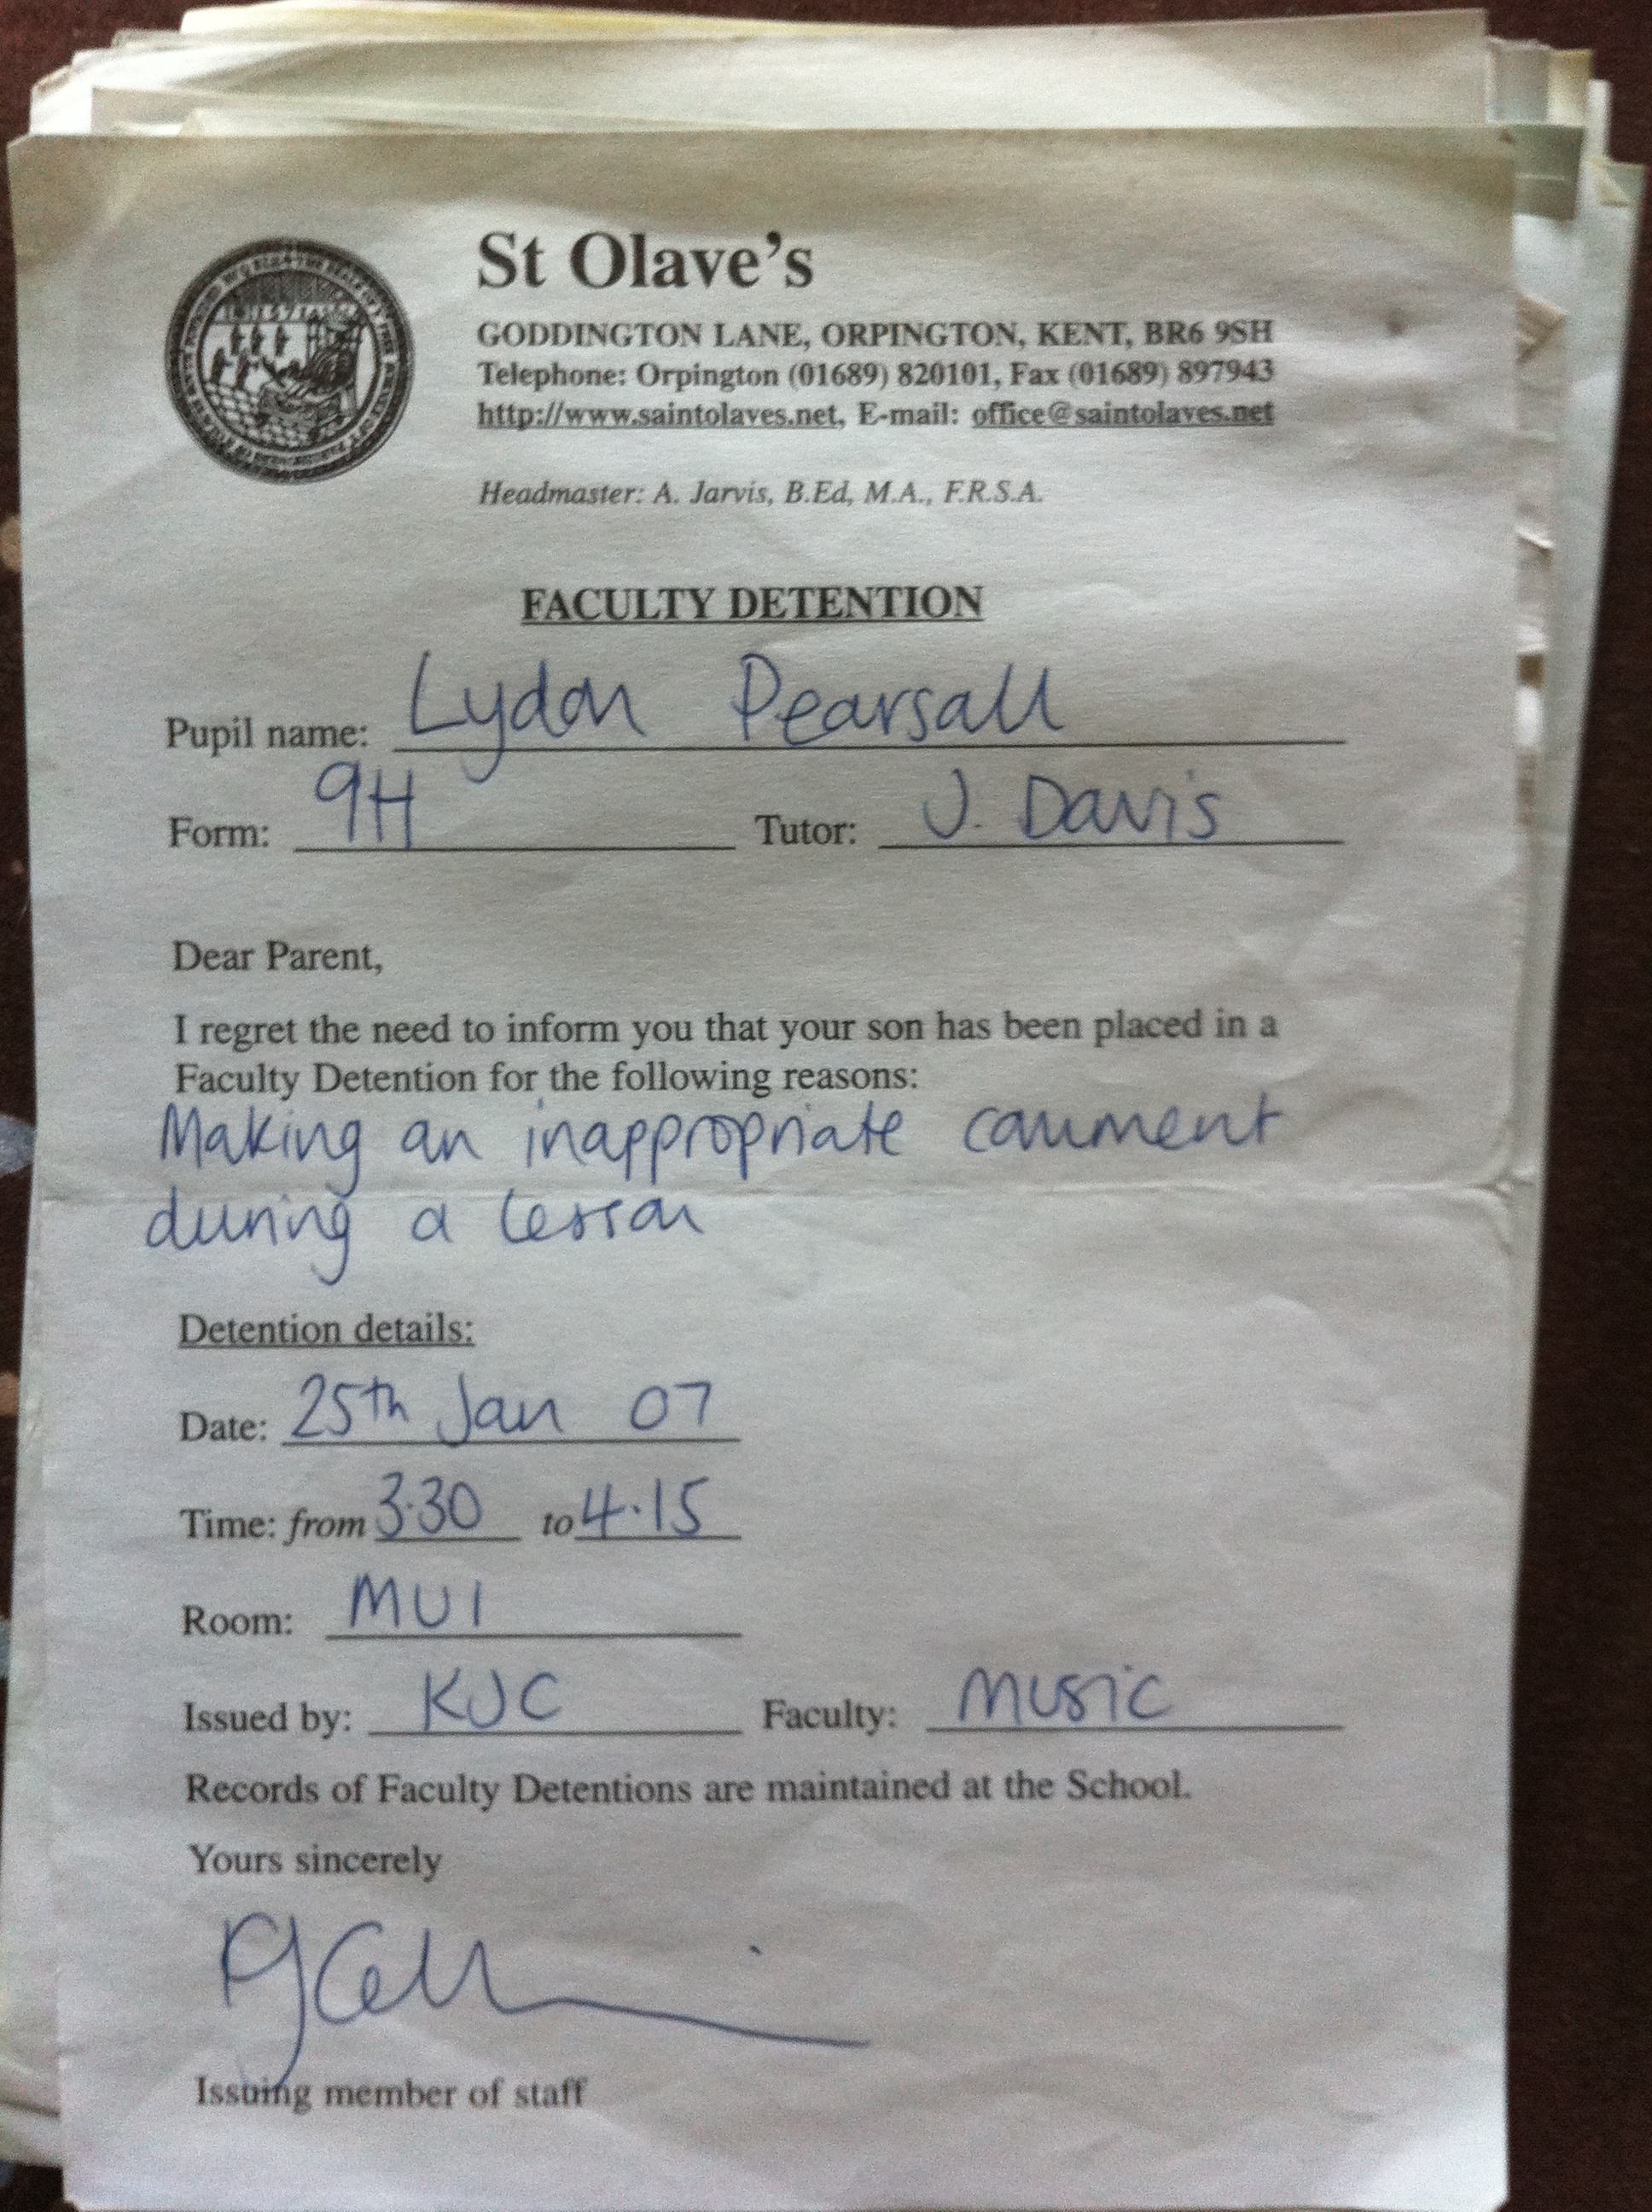 St Olave's
GODDINGTON LANE, ORPINGTON, KENT, BR6 9SH
Telephone: Orpington (01689) 820101, Fax (01689) 897943
http://www.saintolaves.net, E-mail: office@saintolaves.net
Headmaster: A. Jarvis, B.Ed, M.A., F.R.S.A.
FACULTY DETENTION
Pupil name: Lydon Pearsall
Form: 9H Tutor: J. Davis
Dear Parent,
I regret the need to inform you that your son has been placed in a
Faculty Detention for the following reasons:
Making an inappropriate comment
during a lesson
Detention details:
Date: 25th Jan 07
Time: from 3.30 to 4.15
Room: MU1
Issued by: KJC Faculty: MUSIC
Records of Faculty Detentions are maintained at the School.
Yours sincerely
Issuing member of staff